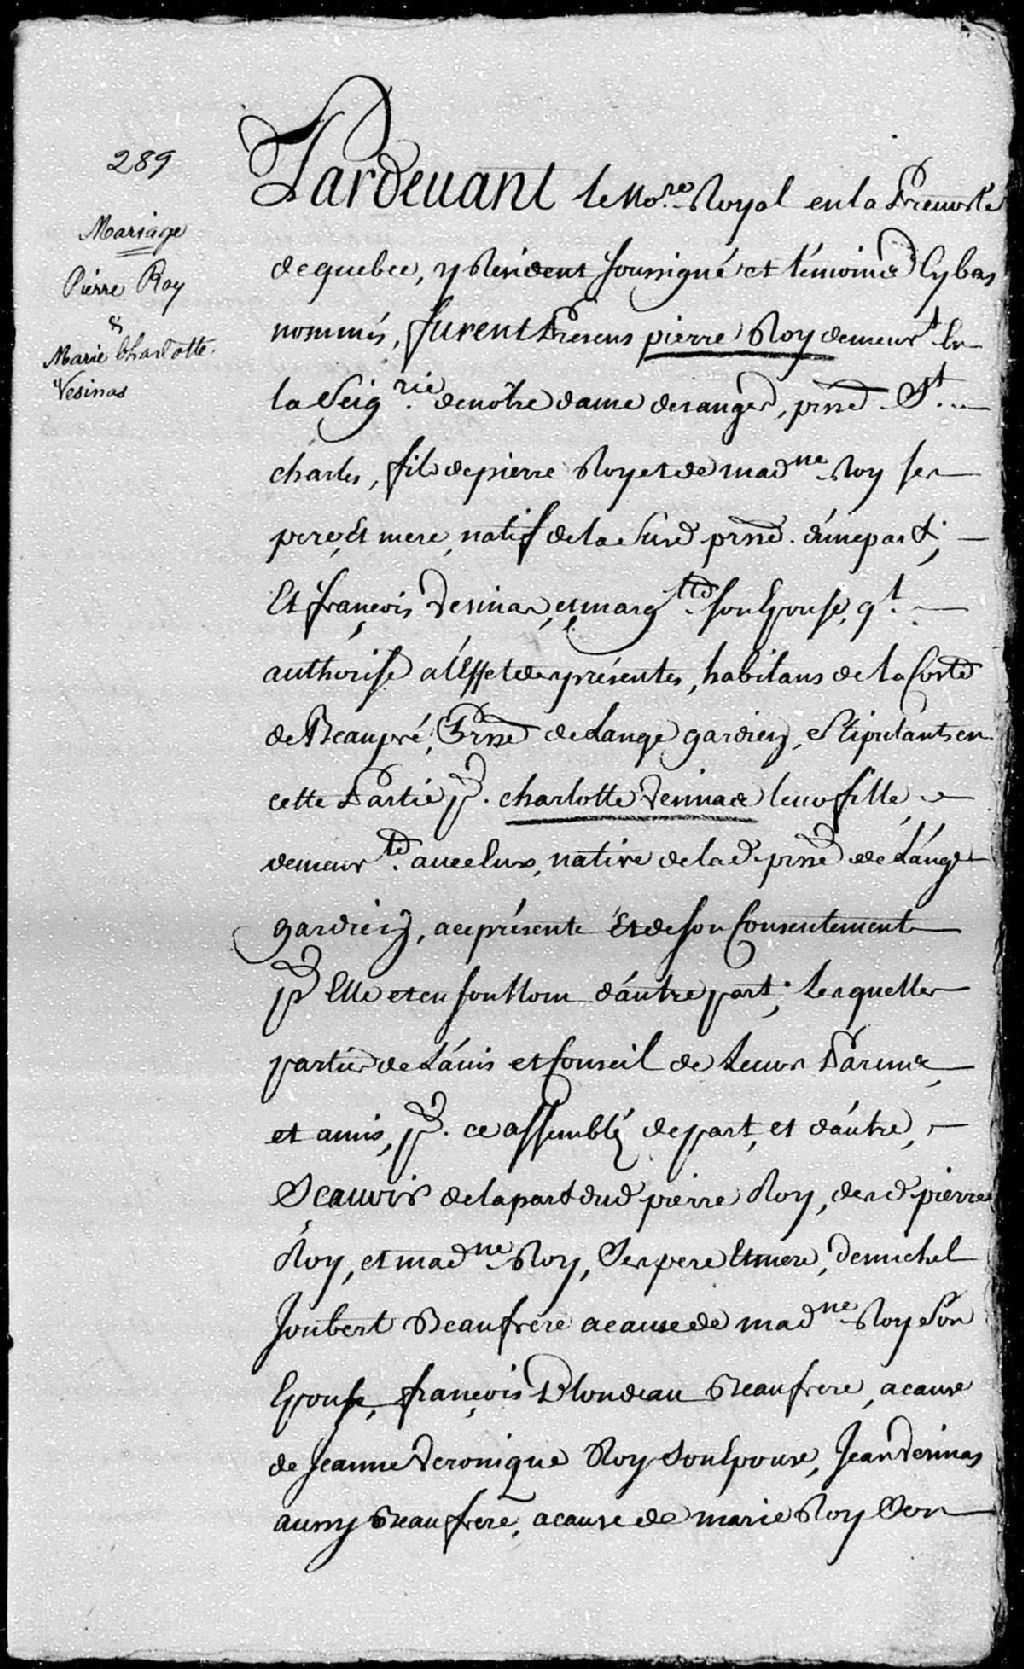 289
Mariage
Pierre Roy
&
Marie Charlotte
Vesinas
Pardevant le No.re Royal en la Prevosté
de quebec, y Resident soussigné et témoins Cy bas
nommés, furent Presens pierre Roy demeur.t En
la Seig.rie de nôtre dame des anges, prsse St.
charles, fils de pierre Roy et de mad.ne Roy ses
pere, Et mere, natif de la Susd. prsse. d'une part,
Et françois Vesinas, et marg.tte son Epouse, q.t
authorise a l'Effet des présentes, habitans de la Coste
de Beaupré, Prsse de Lange gardien, Stipulants en
cette Partie pr. charlotte Vesinas leur fille,
demeur.te avec Eux, native de la d. prsse de L'ange
gardien, a ce présente Et de son Consentement
pr Elle et en son Nom d'autre part; Lesquelles
parties de L'avis et Conseil de Leurs Parens,
et amis, pr. ce assemblés de part, et d'autre,
Sçavoir de la part dud. pierre Roy, desd. pierre
Roy, et mad.ne Roy, Ses pere Et mere, de michel
Joubert Beaufrere a cause de mad.ne Roy Son
Epouse, françois Blondeau Beaufrere, a cause
de Jeanne Veronique Roy Son Epouse, Jean Vesinas
aussy Beaufrere, a cause de marie Roy Son